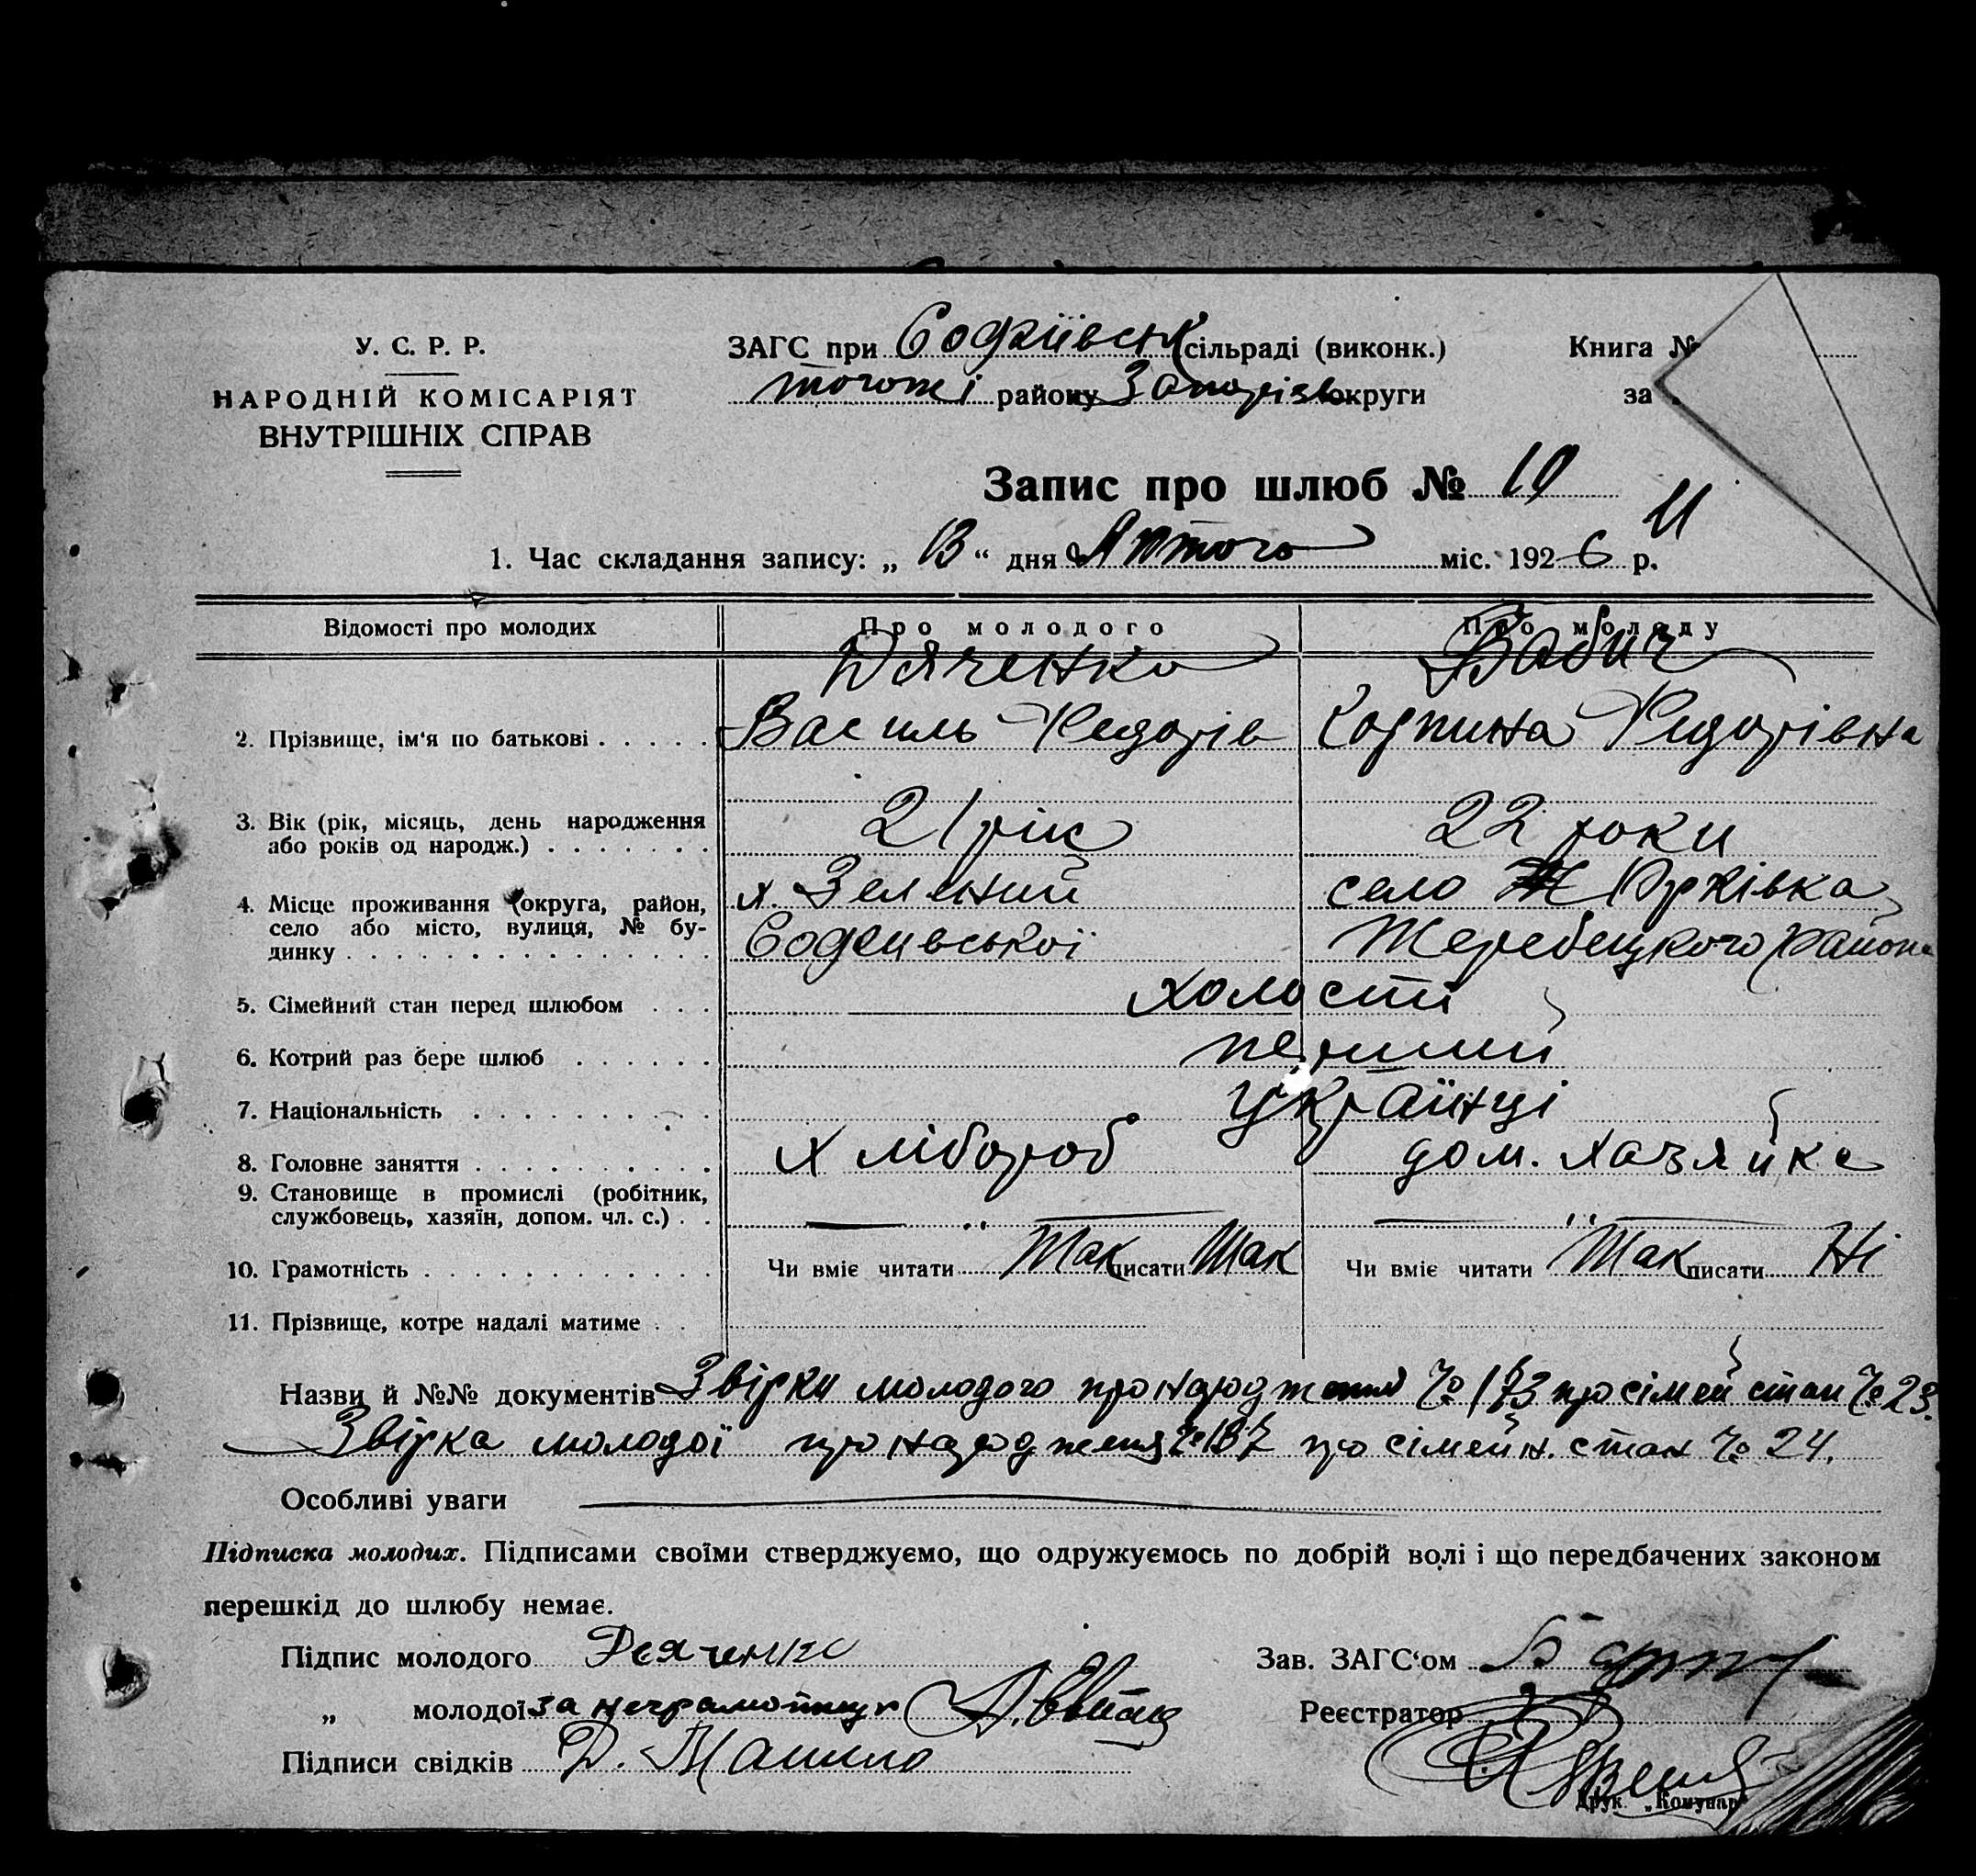 У. С. Р. Р.
НАРОДНІЙ КОМІСАРІЯТ
ВНУТРІШНІХ СПРАВ
ЗАГС при Софіївськ сільраді (виконк.)
тогож і району Запорізь округи
Книга №
за
Запис про шлюб № 10
11
1. Час складання запису: „ 13 “ дня Лютого міс. 1926 р.
Відомості про молодих Про молодого Про молоду
Дяченко Бабич
2. Прізвище, ім'я по батькові Василь Федорів Федорівна
3. Вік (рік, місяць, день народження або років од народж.) 21 рік 22 роки
4. Місце проживання (округа, район, село або місто, вулиця, № будинку х. Зелений село Юрківка
Жеребецького района
5. Сімейний стан перед шлюбом холості
6. Котрий раз бере шлюб перший
7. Національність Українці
8. Головне заняття хлібороб дом. хазяйка
9. Становище в промислі (робітник, службовець, хазяїн, допом. чл. с.)
10. Грамотність Чи вміє читати Так писати Так Чи вміє читати Так писати Ні
11. Прізвище, котре надалі матиме
Назви й №№ документів Звірки молодого про народження № 173 про сімей стан № 23.
Звірка молодої про народженя № 187 про сімейн. стан № 24.
Особливі уваги
Підписка молодих. Підписами своїми стверджуємо, що одружуємось по добрій волі і що передбачених законом
перешкід до шлюбу немає.
Підпис молодого Дяченко
Зав. ЗАГС'ом
„ молодої за неграмотную
Реєстратор
Підписи свідків Д.
Друк „Комунар“